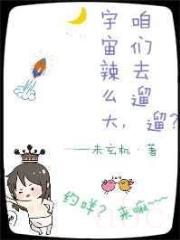 宇宙辣么大，
咱们去遛遛？
——未玄机·著
约咩？来嘛~~